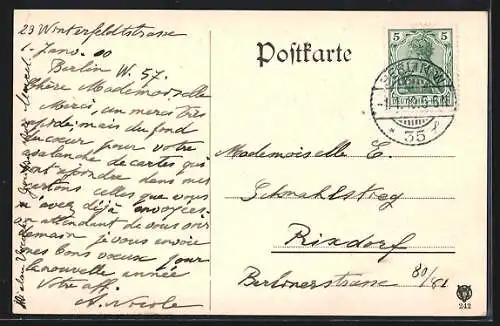 23 Winterfeldtstrasse
1. Janv. 00
Berlin W. 57.
Chère Mademoiselle
Merci, un merci très
rapide, mais du fond
du coeur, pour votre
avalanche de cartes qui
vont dans mes
cartons celles que vous
m'avez déjà envoyées.
en attendant de vous voir
demain je vous envoie
mes bons voeux pour
la nouvelle année
Votre aff.
A. Nicole
Postkarte
5 5
BERLIN W.
35
Mademoiselle E.
Schmahlstieg
Rixdorf
Berlinerstrasse 80/81
242